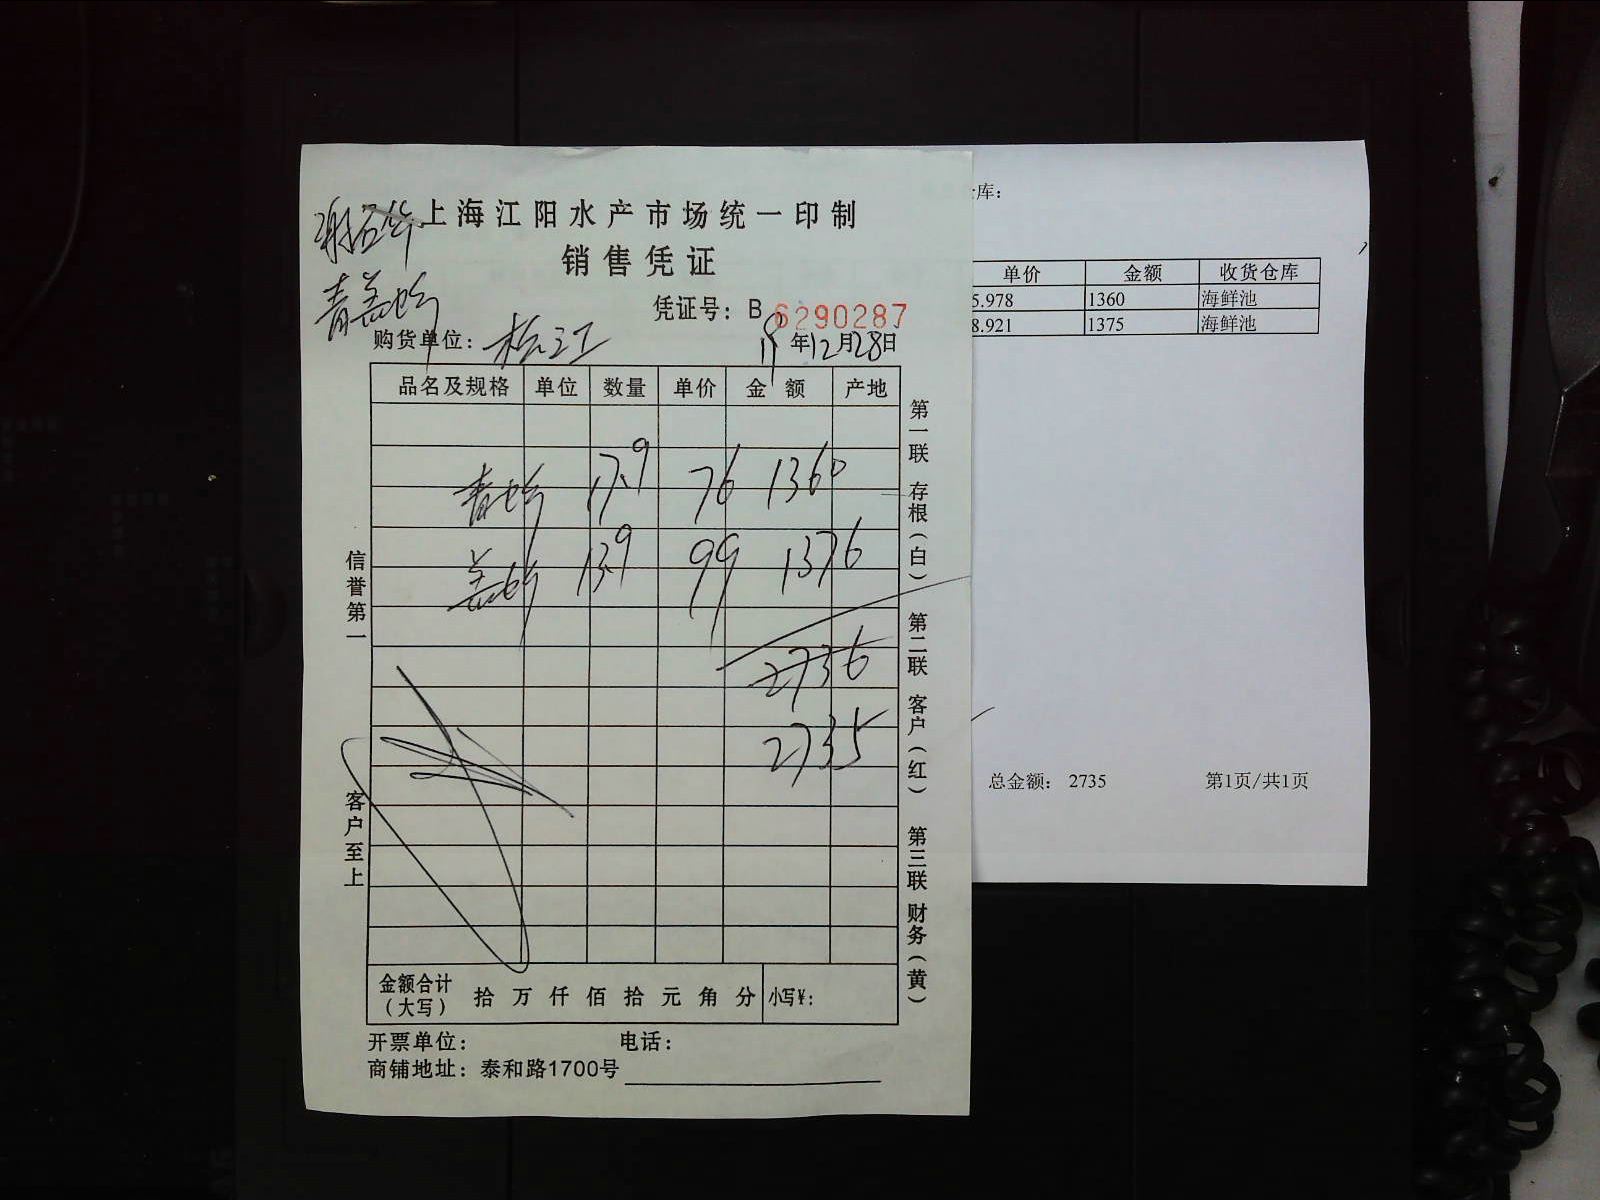 上海江阳水产市场统一印制
销售凭证
凭证号：B 6290287
购货单位：松江 18年12月28日
品名及规格 单位 数量 单价 金额 产地
青蛤 17.9 76 1360
盖蛤 13.9 99 1376
2736
2735
金额合计（大写） 拾 万 仟 佰 拾 元 角 分 小写¥：
开票单位： 电话：
商铺地址：泰和路1700号
信誉第一
客户至上
第一联 存根（白）
第二联 客户（红）
第三联 财务（黄）
库：
单价 金额 收货仓库
5.978 1360 海鲜池
8.921 1375 海鲜池
总金额： 2735 第1页/共1页